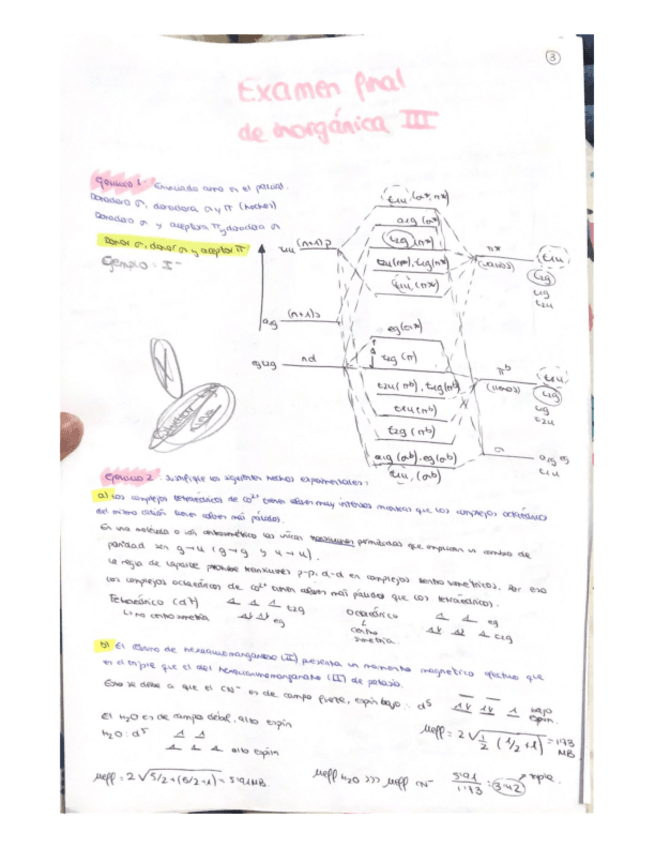 3
Examen final
de inorgánica III
Ejercicio 1. Enunciado como en el parcial.
Donadora σ, donadora σ y π (hechos)
Donadora σ y aceptora π y donadora σ
Donor σ, donor σ y aceptor π
Ejemplo: I⁻
t1u (n+1)p
a1g (n+1)s
eg t2g nd
t1u (σ*, π*)
a1g (σ*)
t2g (π*)
t2u (π*), t1g (π*)
t1u (π*)
eg (σ*)
t2g (π)
t2u (πb), t1g (πb)
t1u (πb)
t2g (πb)
a1g (σb), eg (σb)
t1u, (σb)
π*
(vacíos)
t1u
t2g
t1g
t2u
πb
(llenos)
t1u
t2g
t1g
t2u
σ
a1g eg
t1u
Ejercicio 2: Justifique los siguientes hechos experimentales:
a) Los complejos tetraédricos de Co²⁺ tienen colores muy intensos mientras que los complejos octaédricos
del mismo catión tienen colores más pálidos.
En una molécula o ion centrosimétrico las únicas transiciones permitidas que implican un cambio de
paridad son g→u (g→g y u→u).
La regla de Laporte prohíbe transiciones p-p, d-d en complejos centrosimétricos. Por eso
los complejos octaédricos de Co²⁺ tienen colores más pálidos que los tetraédricos.
Tetraédrico (d7) t2g
↳ no centrosimetría eg
Octaédrico eg
↓
centro
simetría t2g
b) El cloruro de hexaacuomanganeso (II) presenta un momento magnético efectivo que
es el triple que el del hexacianomanganato (II) de potasio.
Esto se debe a que el CN⁻ es de campo fuerte, espín bajo: d⁵ bajo
espín.
El H₂O es de campo débil, alto espín
H₂O: d⁵
alto espín
μeff = 2√1/2 (1/2+1) = 1'73
MB
μeff = 2√5/2+(5/2+1) = 5'91 MB.
μeff H₂O >>> μeff CN⁻ 5'91/1'73 = 3'42 → triple.